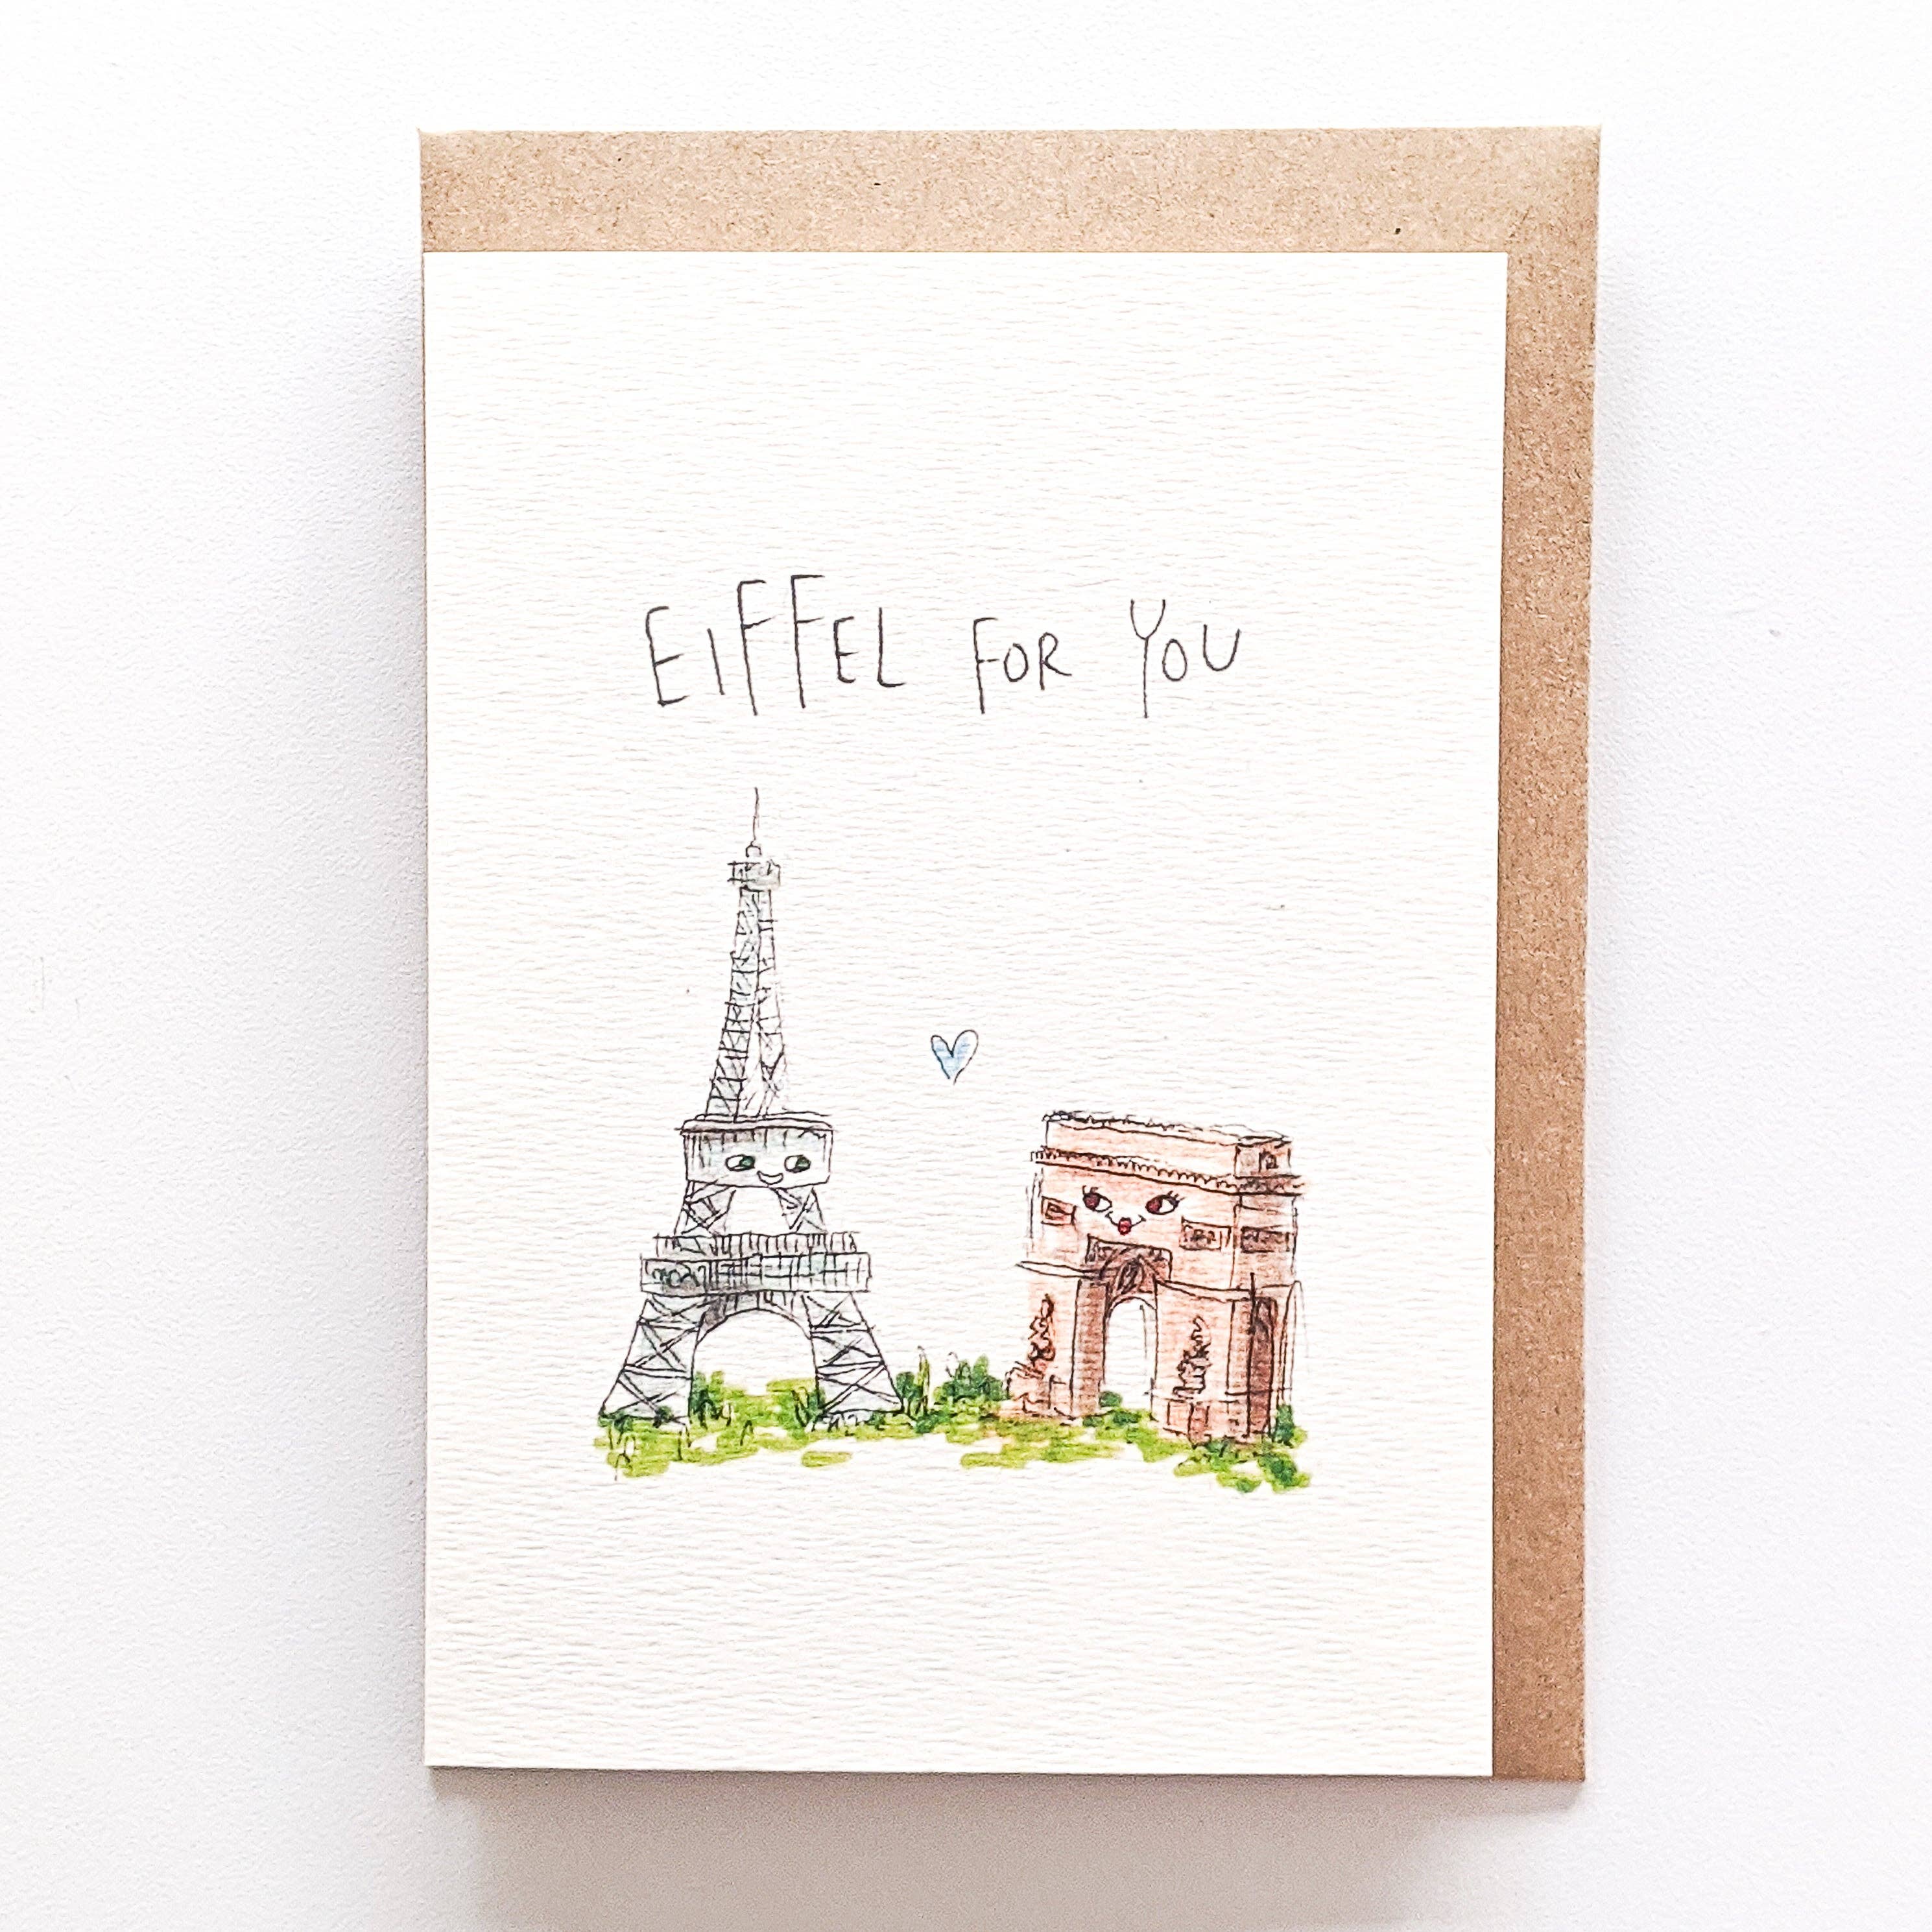 EIFFEL FOR YOU